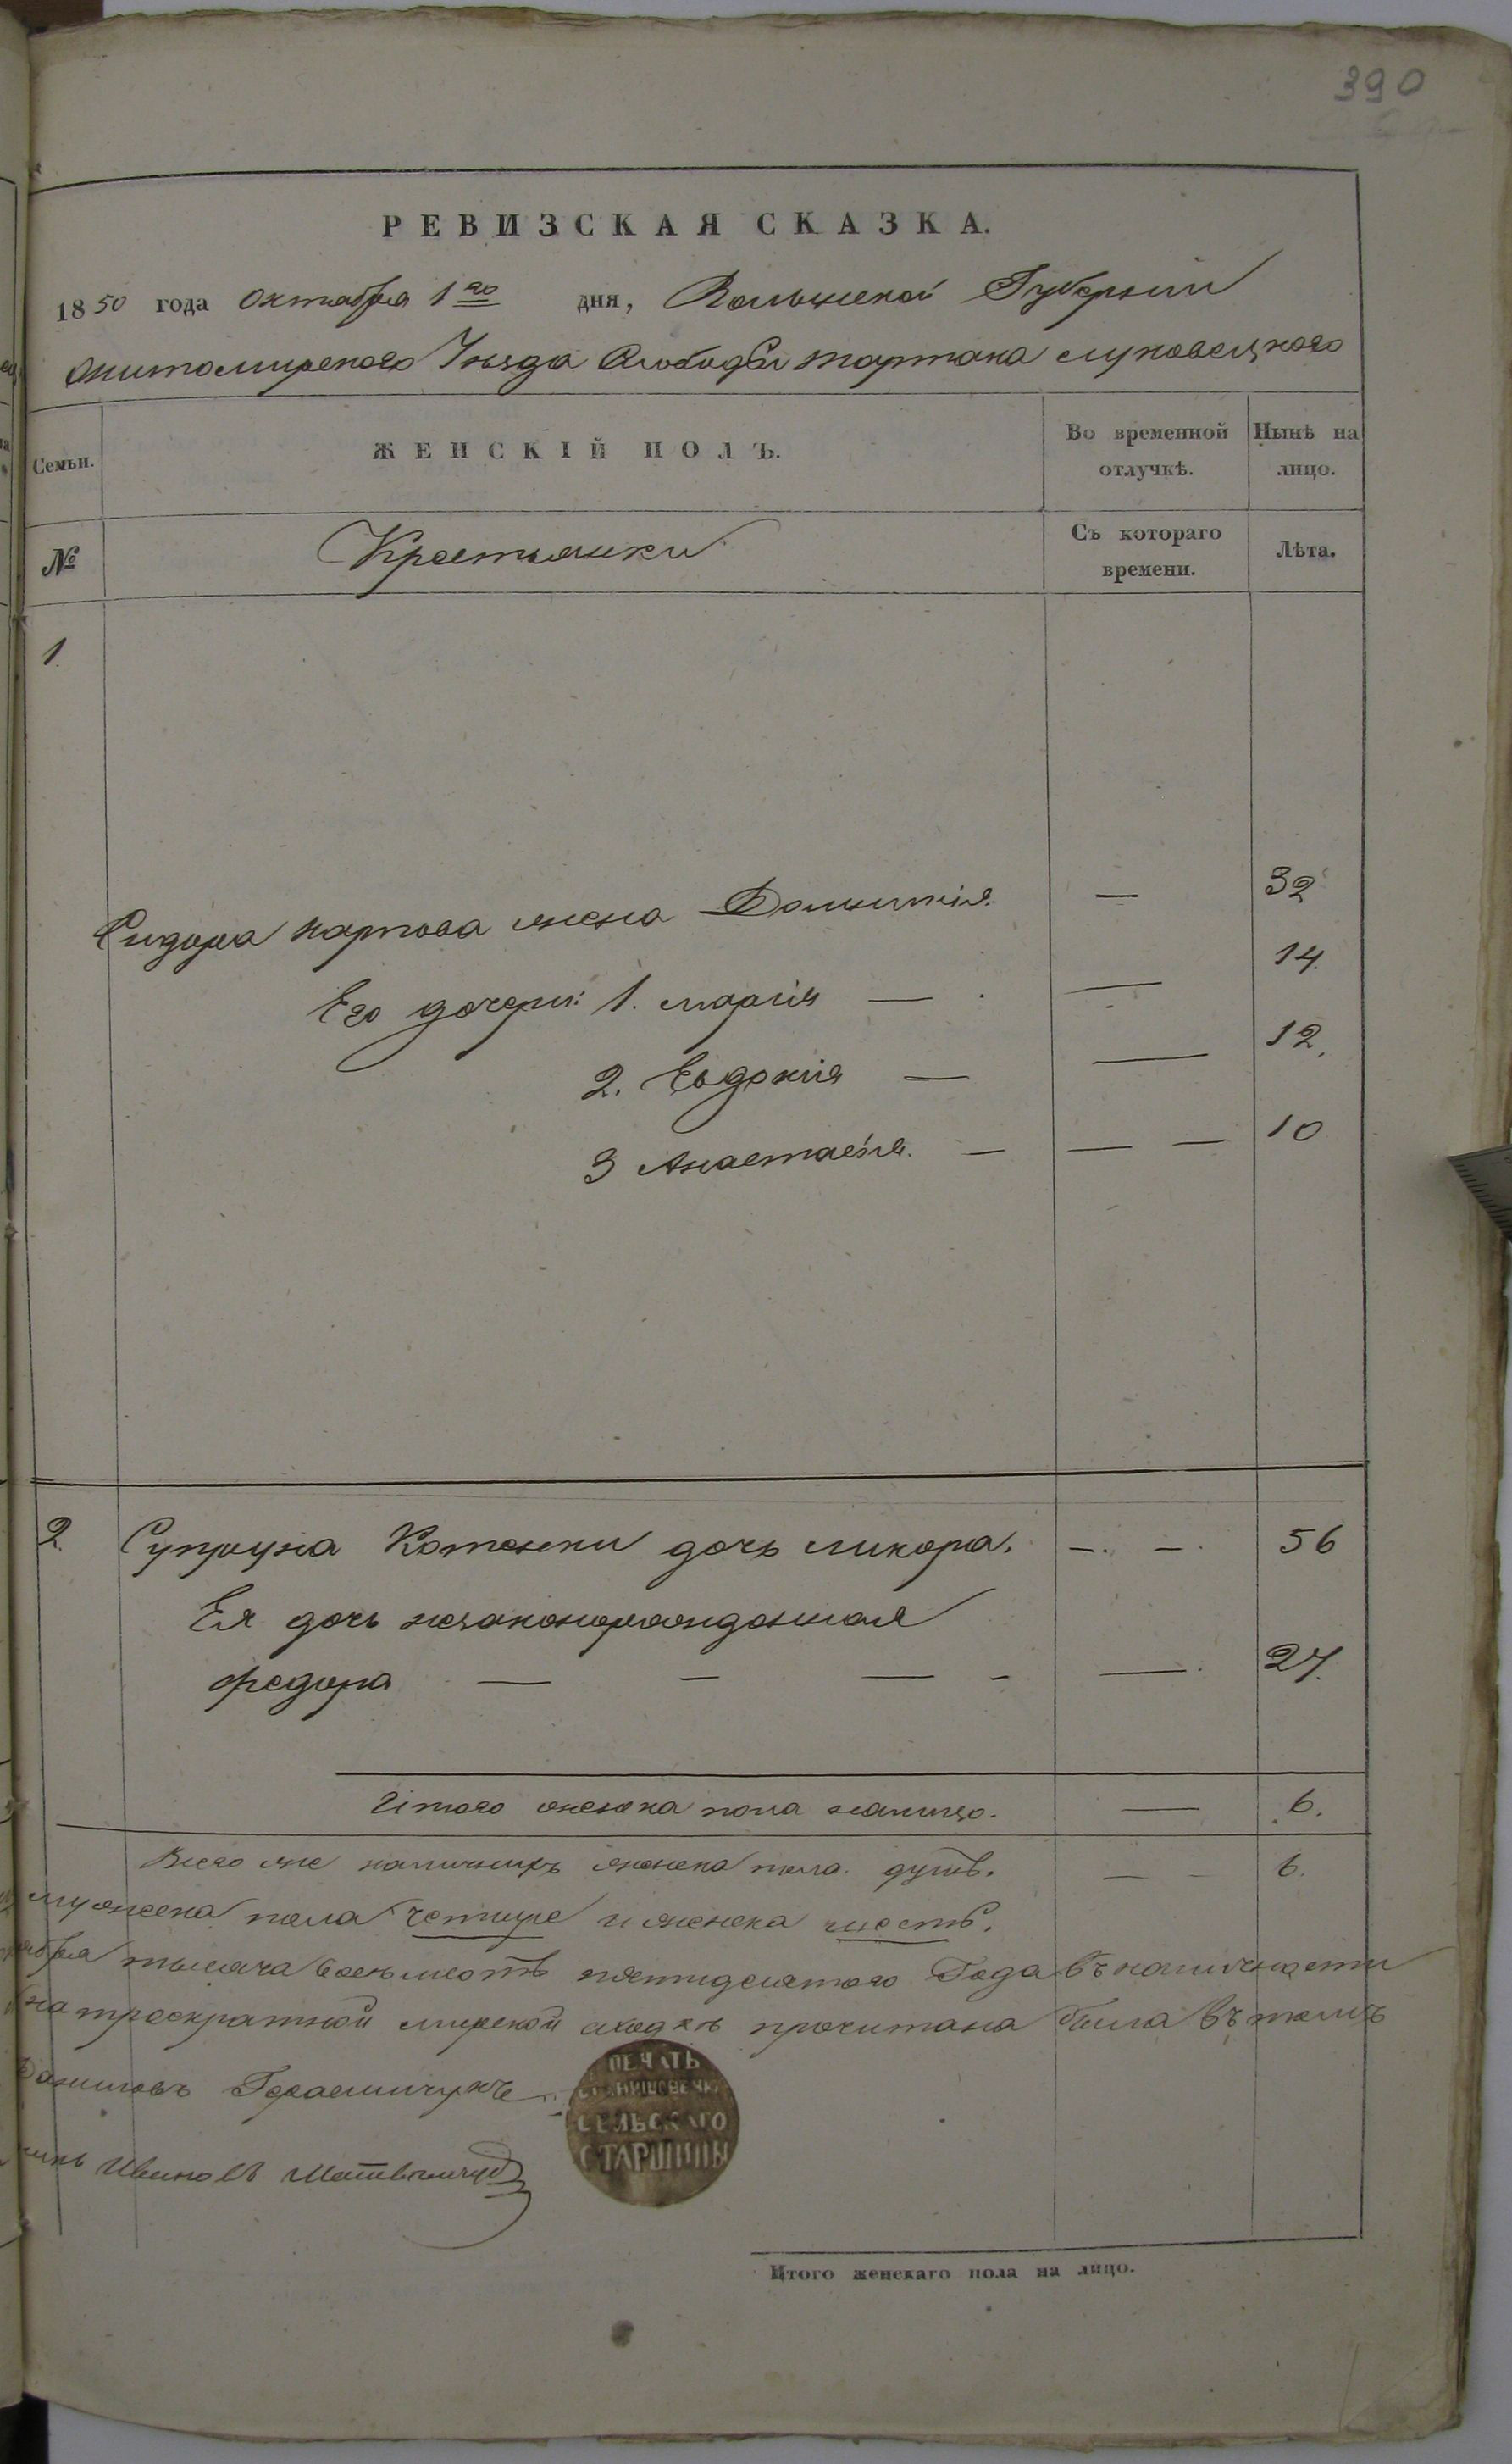 390
РЕВИЗСКАЯ СКАЗКА.
1850 года Октября 1го дня, Волынской Губерніи
Житомирского Уезда Слободы тартака луковецкого
Семьи. ЖЕНСКІЙ ПОЛЪ. Во временной отлучкѣ. Нынѣ на лицо.
№ Крестьянки Съ котораго времени. Лѣта.
1
Сидора карпова жена Домникія. — 32
Его дочери: 1. марія — — 14.
2. Евдокия — — 12.
3 Анастасія. — — — 10
2 Супруна Котенки дочь микора. — — 56
Ея дочь незаконорожденная
федора — — — — — 27.
Итого женска пола налицо. — 6.
Всего же наличныхъ женска пола душъ. — — 6.
мужеска пола четыре и женска шесть.
тысяча восемьсотъ пятидесятого Года въ наличности
на троекратной мирской сходкѣ прочитана была въ томъ
Герасимчукъ
Ивановъ Матвейчукъ
ПЕЧАТЬ
СЕЛЬСКАГО
СТАРШИНЫ
Итого женскаго пола на лицо.